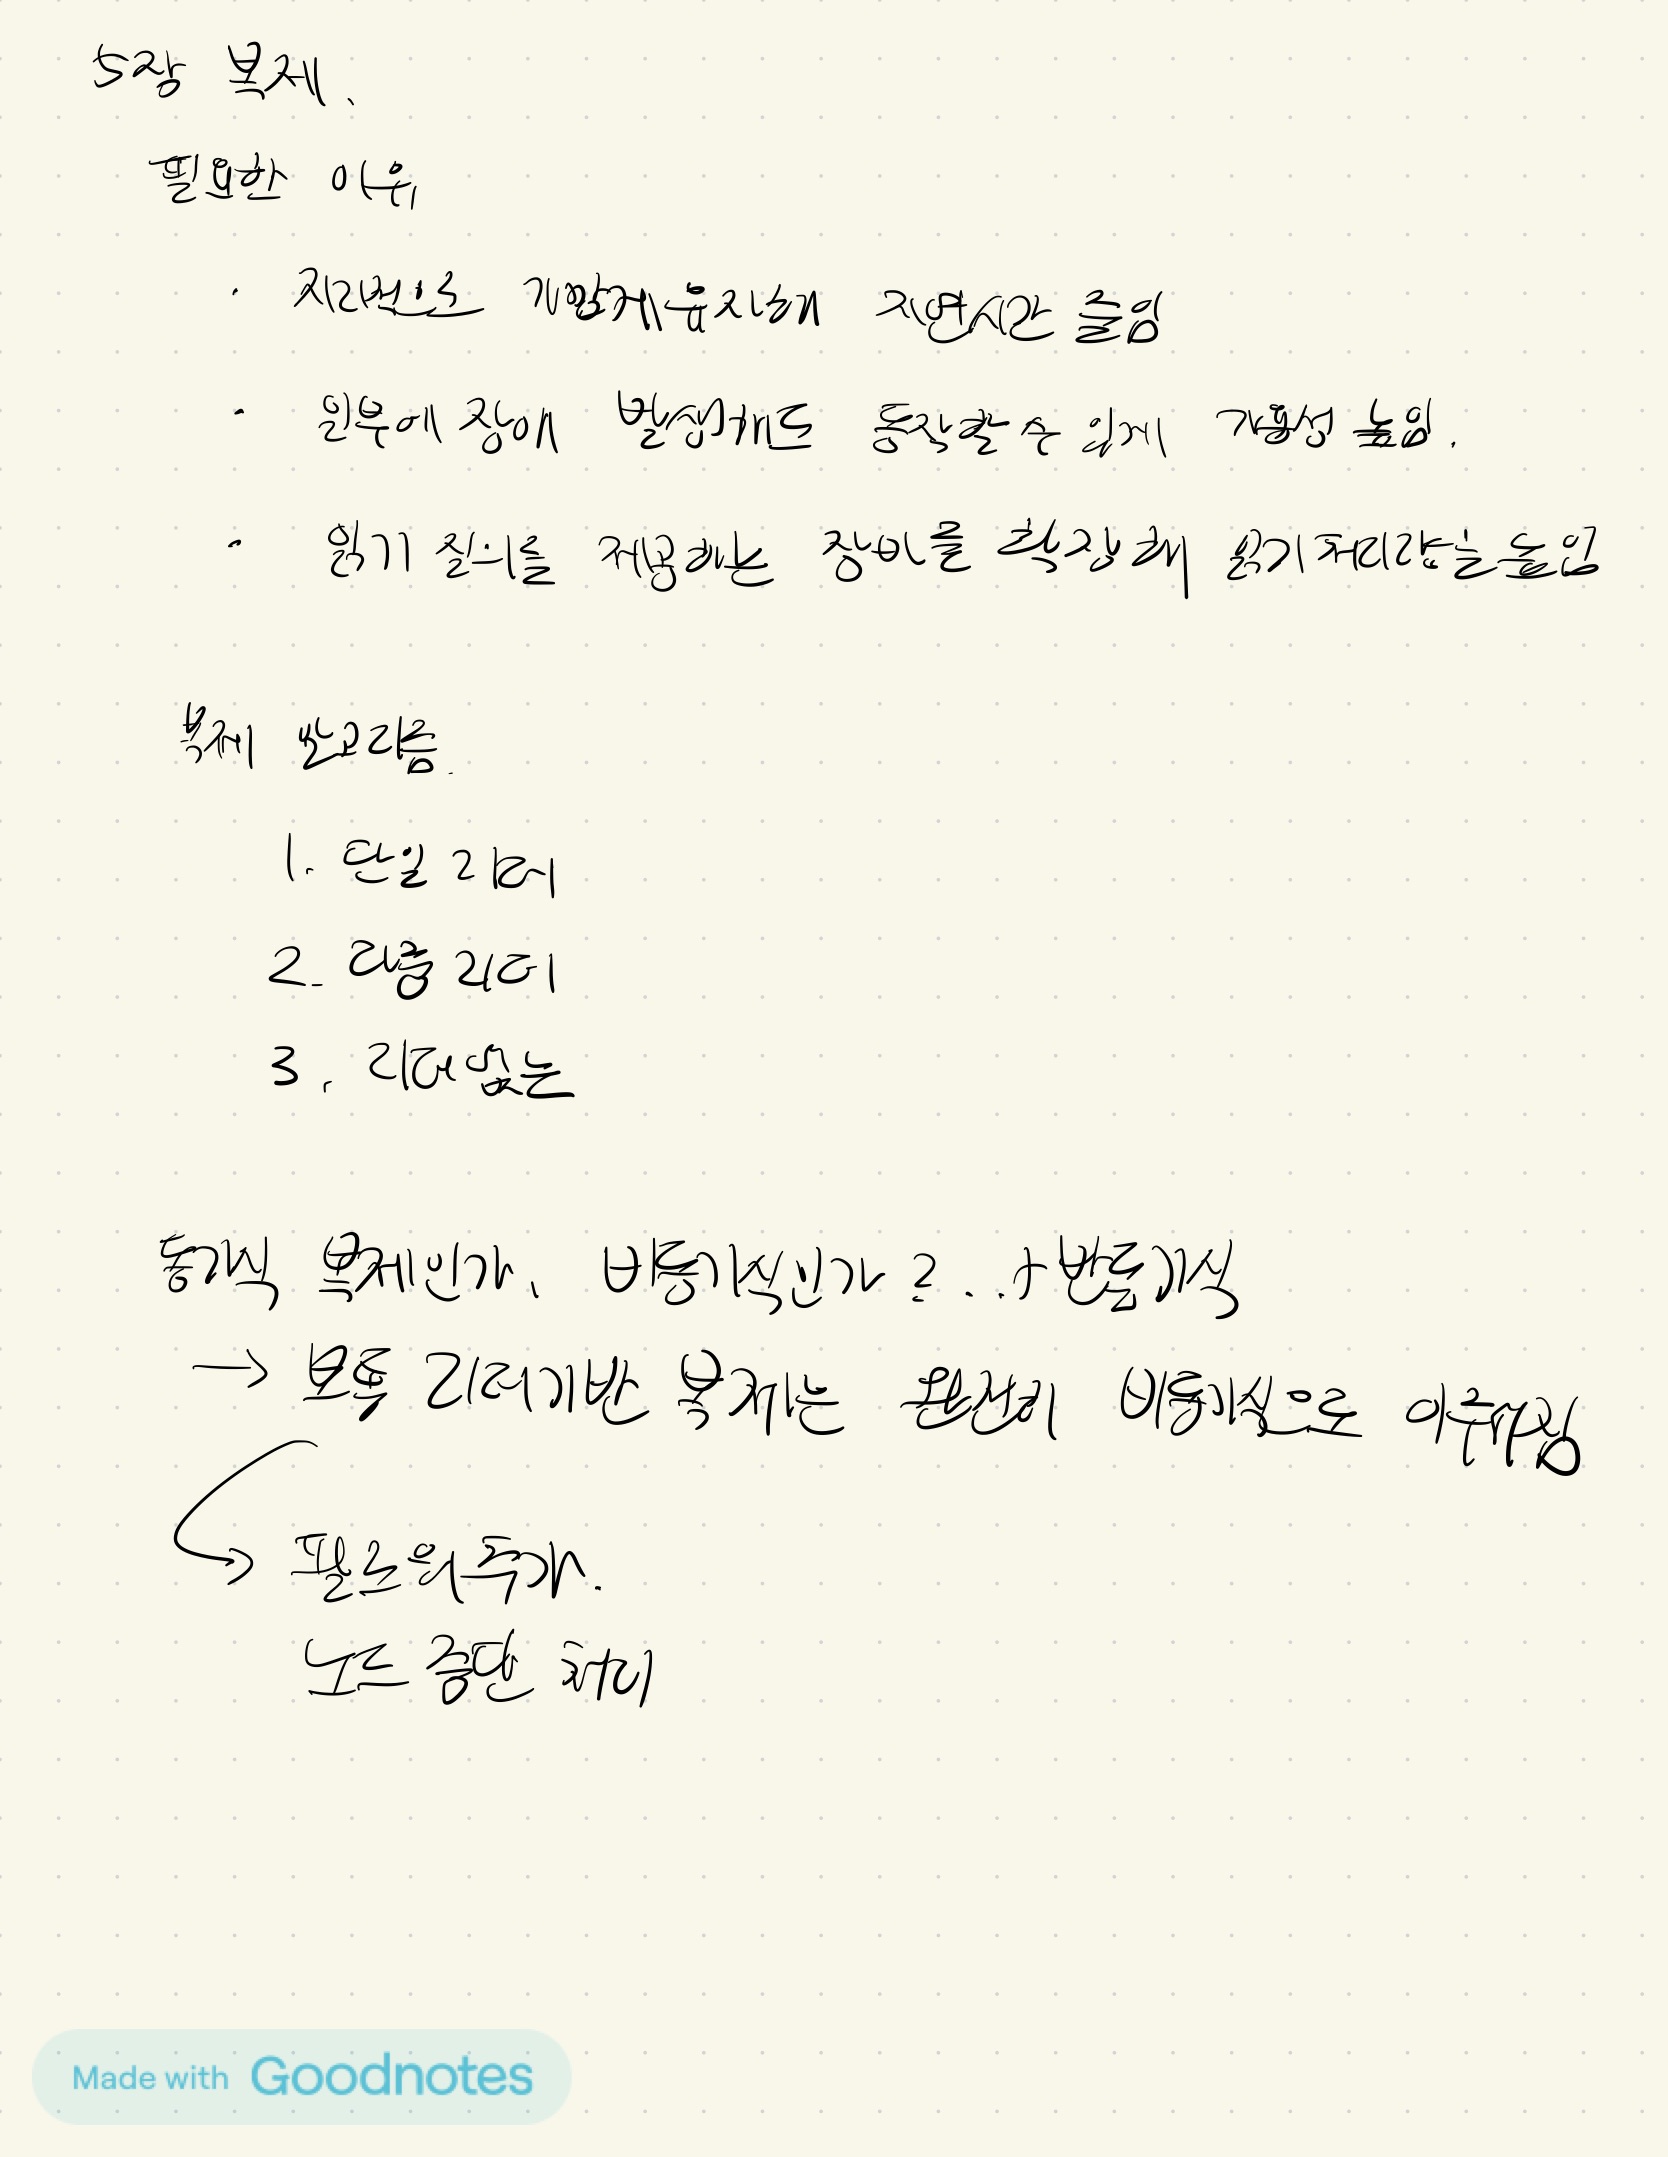 5장 복제.
필요한 이유
· 지리적으로 가깝게 유지해 지연시간 줄임
· 일부에 장애 발생해도 동작할 수 있게 가용성 높임.
· 읽기 질의를 제공하는 장비를 확장해 읽기 처리량을 높임
복제 알고리즘.
1. 단일 리더
2. 다중 리더
3. 리더 없는
동기식 복제인가, 비동기식인가?.. + 반동기식
→ 보통 리더기반 복제는 완전히 비동기식으로 이루어짐
→ 팔로워 추가.
노드 중단 처리
Made with Goodnotes